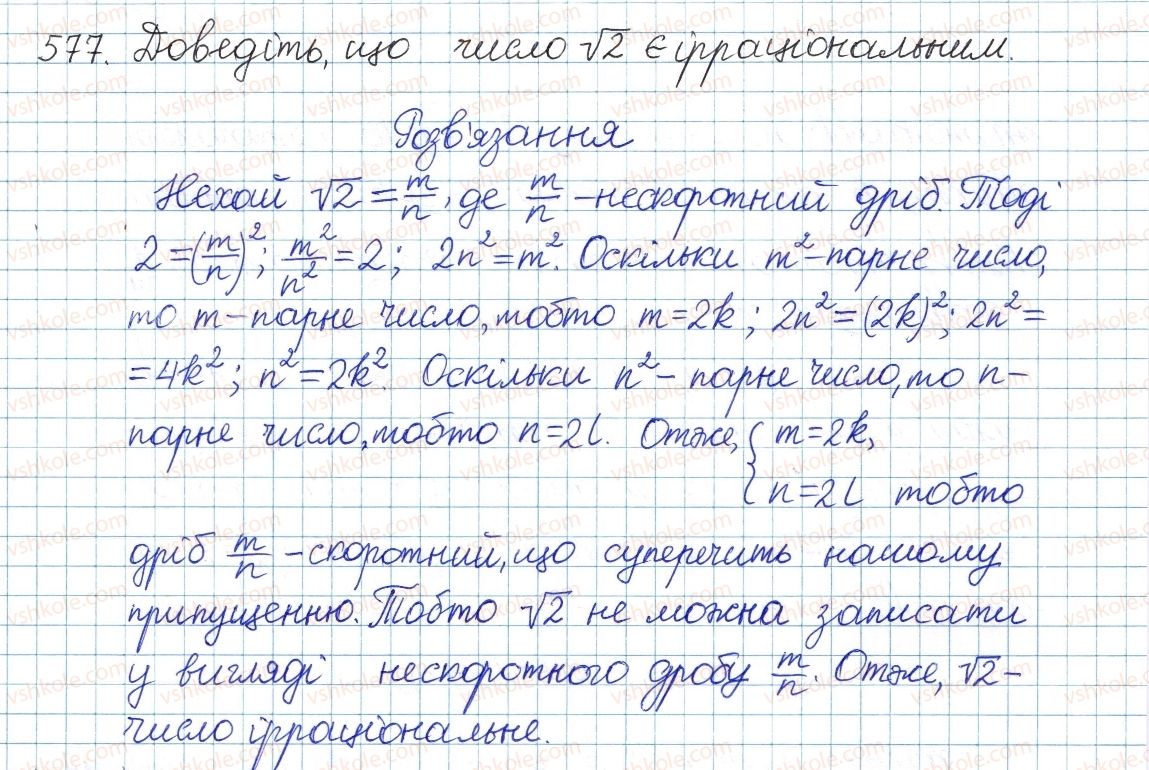 577. Доведіть, що число √2 є ірраціональним.
Розв'язання
Нехай √2 = m/n, де m/n – нескоротний дріб. Тоді
2 = (m/n)²; m²/n² = 2; 2n² = m². Оскільки m² – парне число,
то m – парне число, тобто m = 2k; 2n² = (2k)²; 2n² =
= 4k²; n² = 2k². Оскільки n² – парне число, то n –
парне число, тобто n = 2l. Отже, { m = 2k,
n = 2l тобто
дріб m/n – скоротний, що суперечить нашому
припущенню. Тобто √2 не можна записати
у вигляді нескоротного дробу m/n. Отже, √2 –
число ірраціональне.